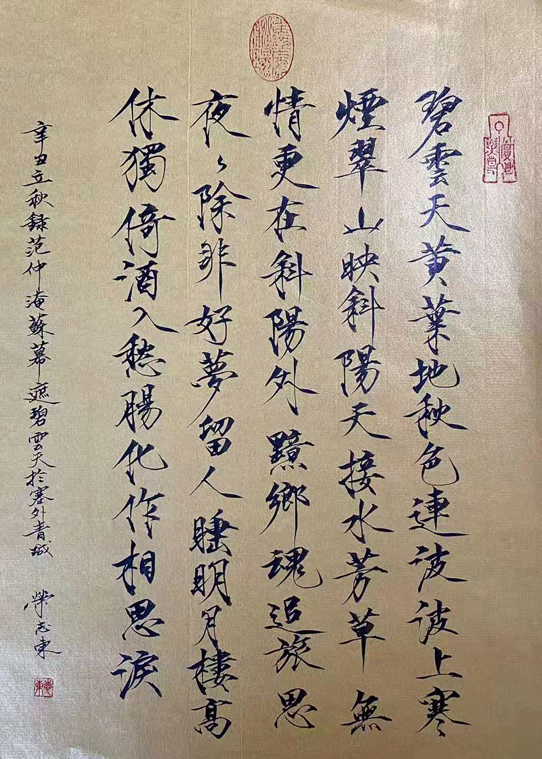 碧雲天黄葉地秋色連波波上寒
煙翠山映斜陽天接水芳草無
情更在斜陽外黯鄉魂追旅思
夜々除非好夢留人睡明月樓高
休獨倚酒入愁腸化作相思淚
辛丑立秋録范仲淹蘇幕遮碧雲天於塞外青城
榮志東